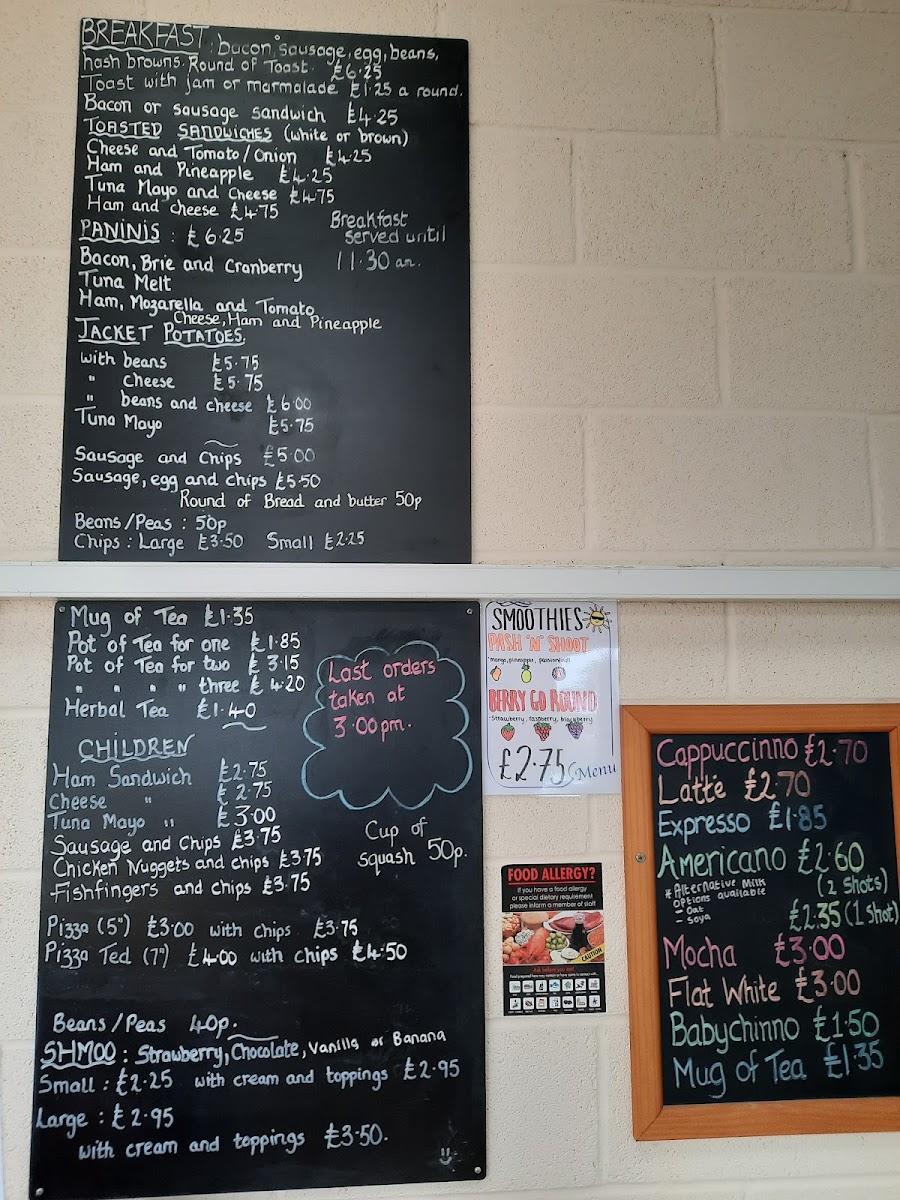 BREAKFAST : bacon, sausage, egg, beans,
hash browns. Round of Toast. £6.25
Toast with jam or marmalade £1.25 a round.
Bacon or sausage sandwich £4.25
TOASTED SANDWICHES (white or brown)
Cheese and Tomato/Onion £4.25
Ham and Pineapple £4.25
Tuna Mayo and Cheese £4.75
Ham and cheese £4.75
Breakfast
served until
11.30 am.
PANINIS : £6.25
Bacon, Brie and Cranberry
Tuna Melt
Ham, Mozarella and Tomato
Cheese, Ham and Pineapple
JACKET POTATOES.
with beans £5.75
" cheese £5.75
" beans and cheese £6.00
Tuna Mayo £5.75
Sausage and Chips £5.00
Sausage, egg and chips £5.50
Round of Bread and butter 50p
Beans/Peas : 50p
Chips : Large £3.50 Small £2.25
Mug of Tea £1.35
Pot of Tea for one £1.85
Pot of Tea for two £3.15
" " " " three £4.20
Herbal Tea £1.40
Last orders
taken at
3.00pm.
CHILDREN
Ham Sandwich £2.75
Cheese " £2.75
Tuna Mayo " £3.00
Sausage and Chips £3.75
Chicken Nuggets and chips £3.75
Fishfingers and chips £3.75
Cup of
squash 50p.
Pizza (5") £3.00 with chips £3.75
Pizza Ted (7") £4.00 with chips £4.50
Beans/Peas 40p.
SHMOO : Strawberry, Chocolate, Vanilla or Banana
Small : £2.25 with cream and toppings £2.95
Large : £2.95
with cream and toppings £3.50.
SMOOTHIES
PASH 'N' SHOOT
mango, pineapple, passionfruit
BERRY GO ROUND
strawberry, raspberry, blackberry
£2.75
Menu
FOOD ALLERGY?
If you have a food allergy
or special dietary requirement
please inform a member of staff
CAUTION
Ask before you eat!
Cappuccinno £2.70
Latte £2.70
Expresso £1.85
Americano £2.60
(2 Shots)
* Alternative Milk
Options available
- Oat
- Soya
£2.35 (1 Shot)
Mocha £3.00
Flat White £3.00
Babychinno £1.50
Mug of Tea £1.35